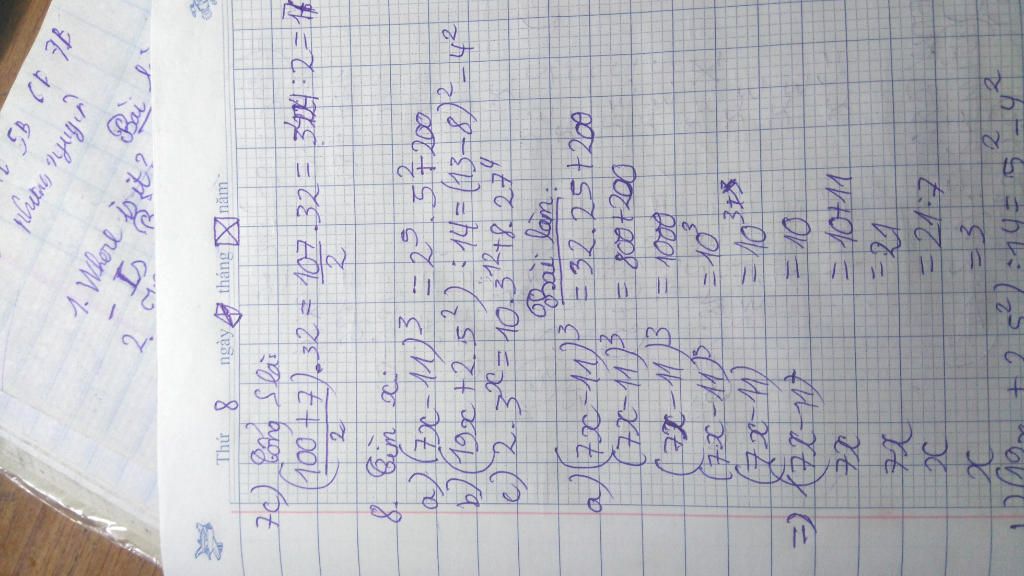 Thứ 8 ngày tháng năm
7c) Tổng S là:
(100+7)/2 . 32 = 107/2 . 32 = 3424 : 2 = 17
8. Tìm x:
a) (7x-11)³ = 2⁵.5²+200
b) (19x+2.5²):14 = (13-8)²-4²
c) 2.3ˣ = 10.3¹²+8.27⁴
Bài làm:
a) (7x-11)³ = 32.25+200
(7x-11)³ = 800+200
(7x-11)³ = 1000
(7x-11)³ = 10³
(7x-11) = 10³
=> (7x-11) = 10
7x = 10+11
7x = 21
x = 21:7
x = 3
(19x+2.5²):14 = 5²-4²
5B
1. Where is
- Is it?
2.
Bài